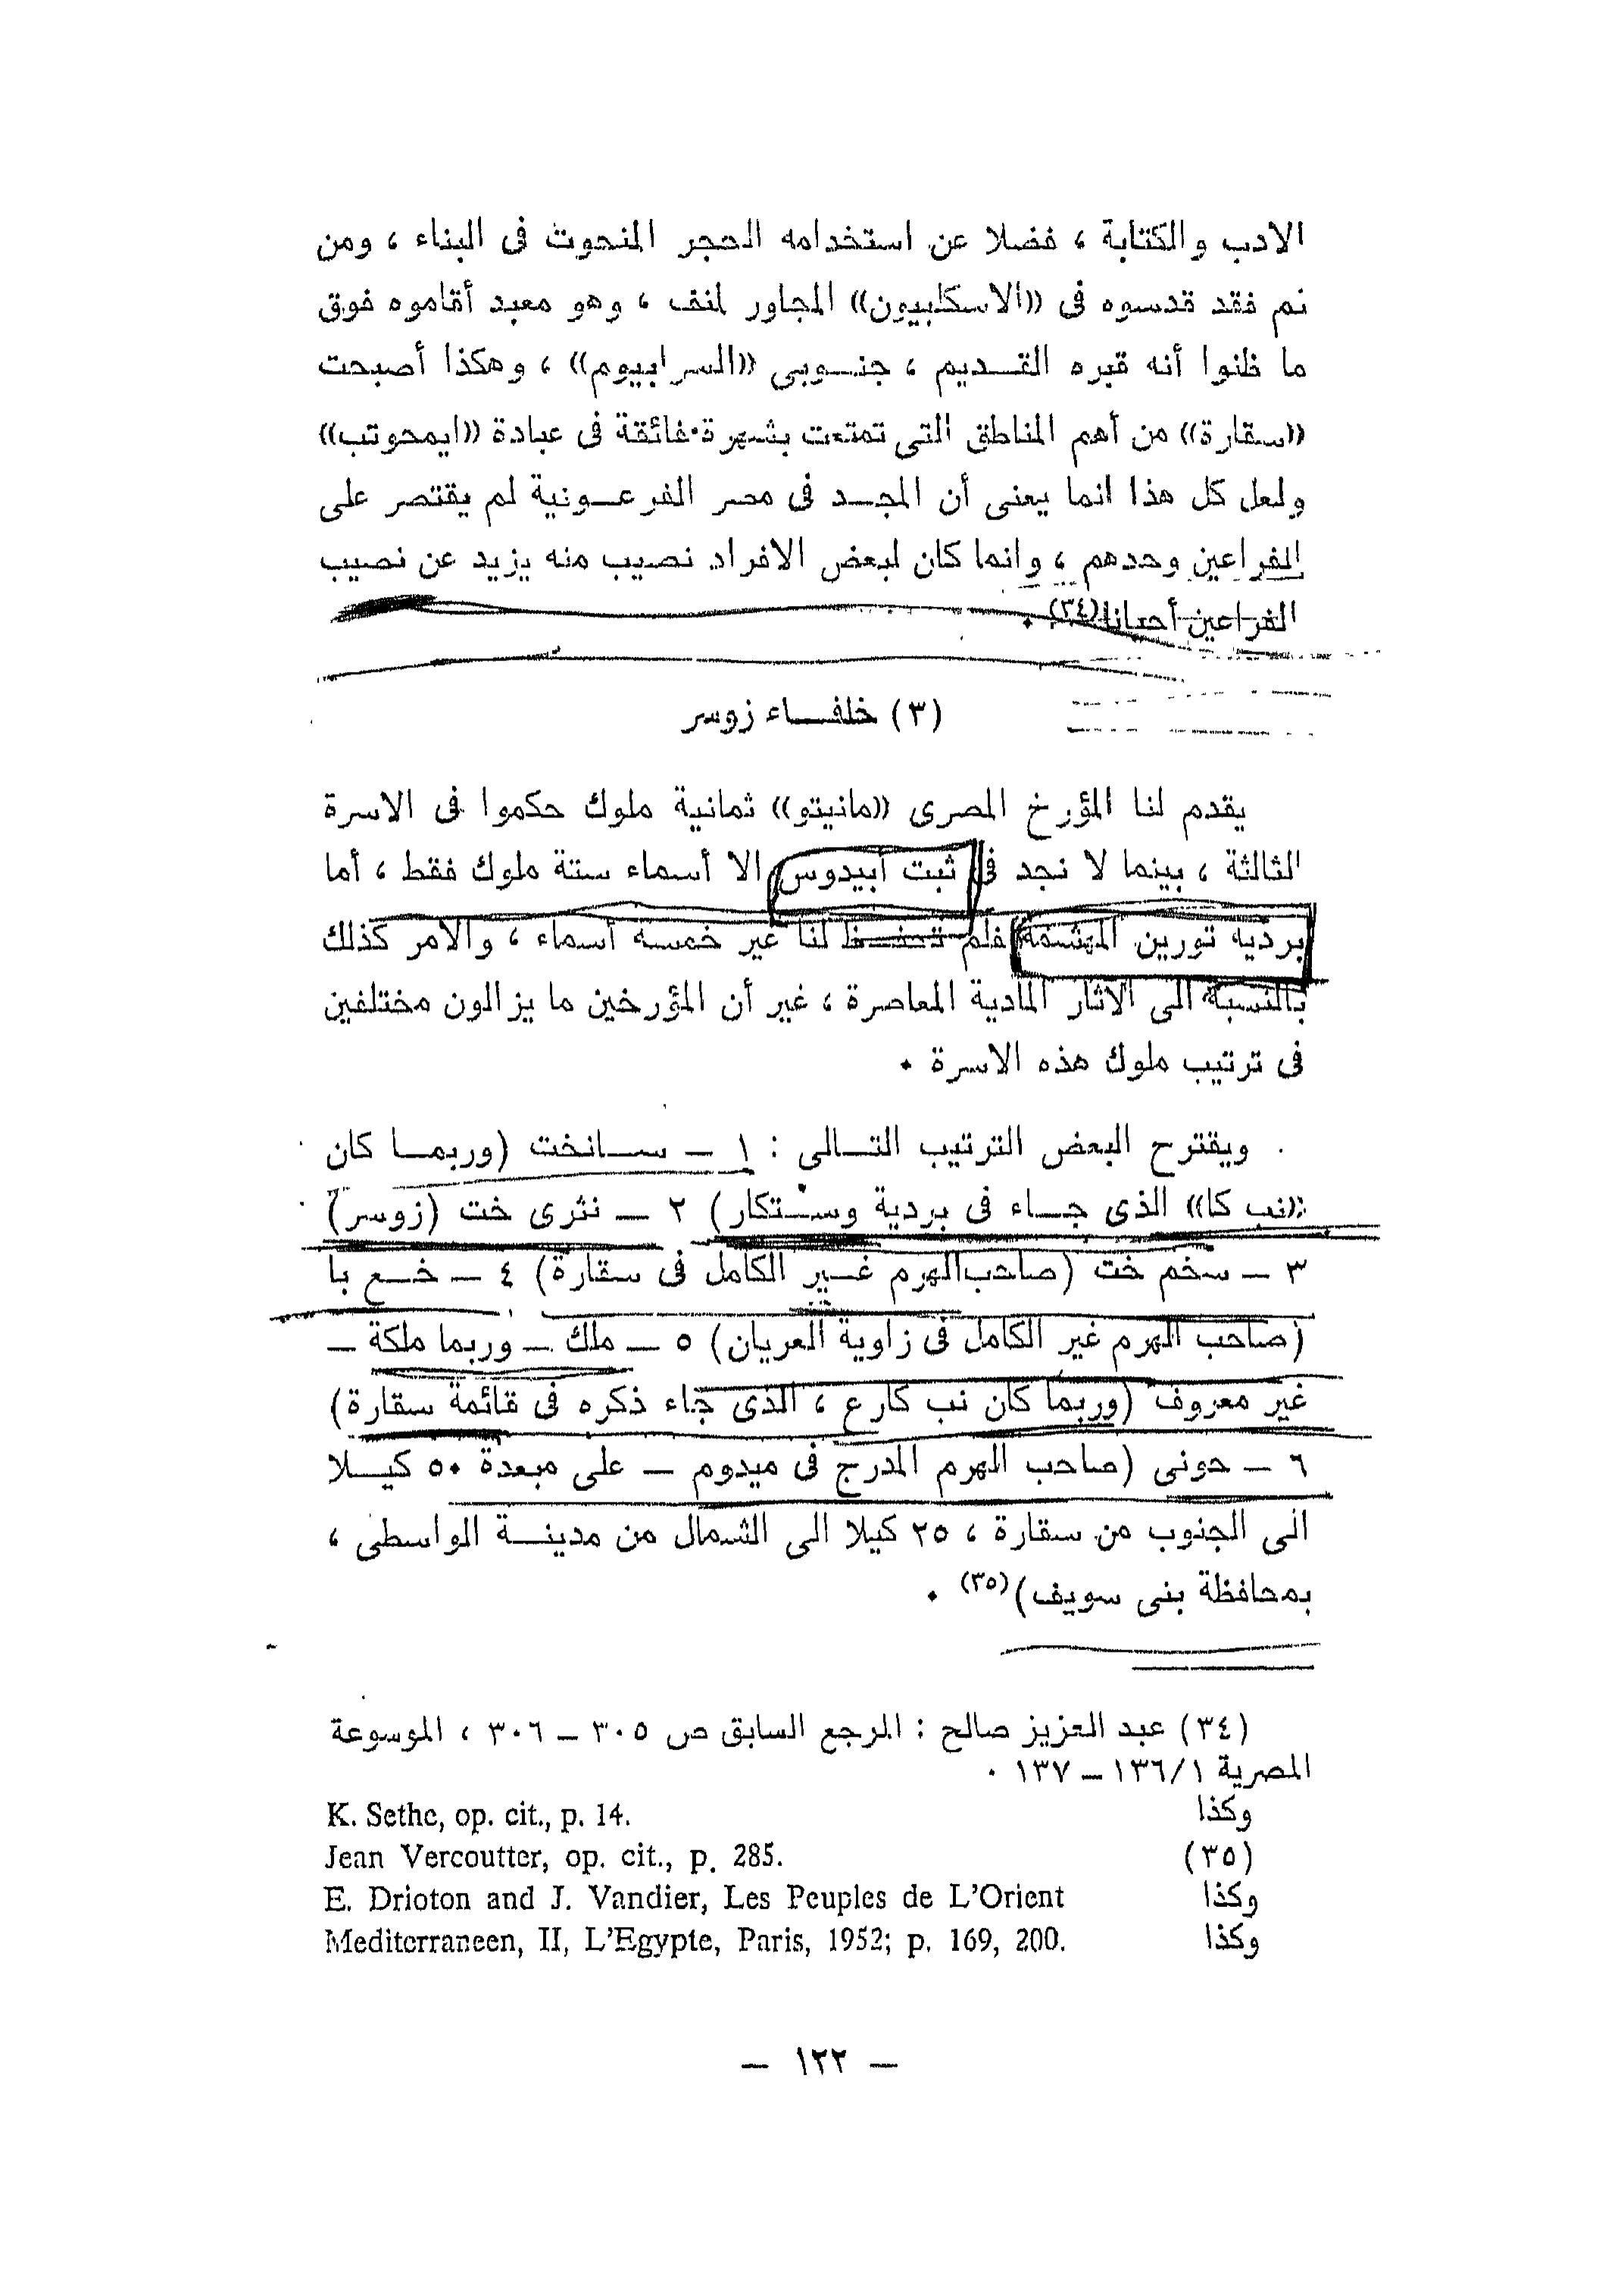 الادب والكتابة ، فضلا عن استخدامه الحجر المنحوت فى البناء ، ومن
ثم فقد قدسوه فى «الاسكلبيون» المجاور لمنف ، وهو معبد أقاموه فوق
ما ظنوا أنه قبره القـــديم ، جنــوبى «السرابيوم» ، وهكذا أصبحت
«سقارة» من أهم المناطق التى تمتعت بشهرة فائقة فى عبادة «ايمحوتب»
ولعل كل هذا انما يعنى أن المجــد فى مصر الفرعــونية لم يقتصر على
الفراعين وحدهم ، وانما كان لبعض الافراد نصيب منه يزيد عن نصيب
الفراعين أحيانا(٣٤) .
(٣) خلفـــاء زوسر
يقدم لنا المؤرخ المصرى «مانيتو» ثمانية ملوك حكموا فى الاسرة
الثالثة ، بينما لا نجد فى ثبت أبيدوس الا أسماء ستة ملوك فقط ، أما
بردية تورين المهشمة فلم تحفــظ لنا غير خمسة أسماء ، والامر كذلك
بالنسبة الى الاثار المادية المعاصرة ، غير أن المؤرخين ما يزالون مختلفين
فى ترتيب ملوك هذه الاسرة .
ويقترح البعض الترتيب التــالى : ١ — ســانخت (وربمــا كان
«نب كا» الذى جــاء فى بردية وســتكار) ٢ — نثرى خت (زوسر)
٣ — سخم خت (صاحب الهرم غــير الكامل فى سقارة) ٤ — خــع با
(صاحب الهرم غير الكامل فى زاوية العريان) ٥ — ملك — وربما ملكة —
غير معروف (وربما كان نب كارع ، الذى جاء ذكره فى قائمة سقارة)
٦ — حونى (صاحب الهرم المدرج فى ميدوم — على مبعدة ٥٠ كيــلا
الى الجنوب من سقارة ، ٢٥ كيلا الى الشمال من مدينــة الواسطى ،
بمحافظة بنى سويف)(٣٥) .
(٣٤) عبد العزيز صالح : المرجع السابق ص ٣٠٥ — ٣٠٦ ، الموسوعة
المصرية ١٣٦/١ — ١٣٧ .
وكذا K. Sethe, op. cit., p. 14.
(٣٥) Jean Vercoutter, op. cit., p. 285.
وكذا E. Drioton and J. Vandier, Les Peuples de L'Orient
وكذا Mediterraneen, II, L'Egypte, Paris, 1952; p. 169, 200.
— ١٢٢ —